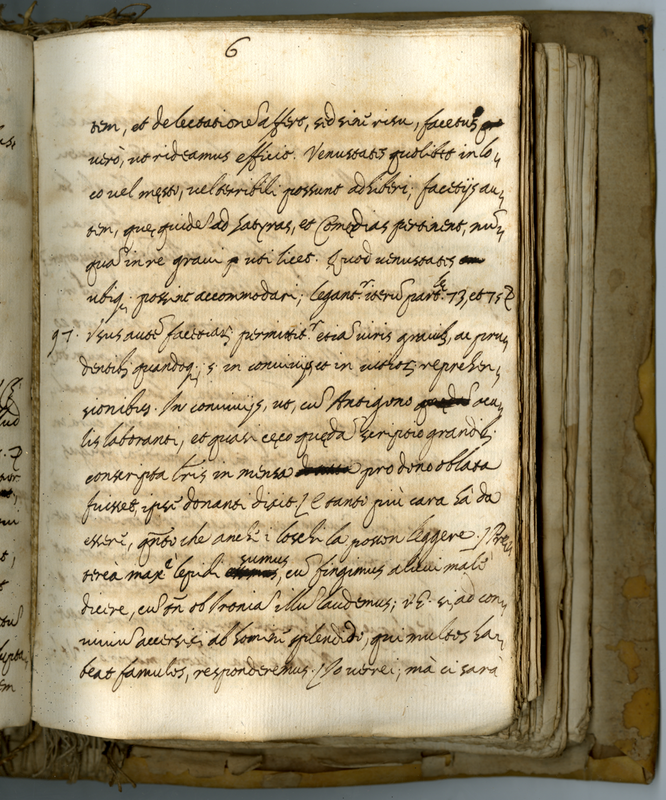 6
tem, et delectatione affert, sed sine risu, facetus
verò, ut rideamus efficit. Venustates quolibet in lo,,
co vel męsto, vel terribili possunt adhiberi; facetijs au,,
tem, quę quidē ad satyras, et Comędias pertinent, nū,,
quā in re gravi uti licet. Quod venustates
ubiq; possint accommodari; legant.r iterū part. 73, et 75
97. Usus autē facetiarū permittit.r etiā viris gravib; ac pru,,
dentib; quandoq; s. in convivijs et in vitior; reprehen,,
sionibus. In convivijs, ut, cū Antigono ocu,,
lis laboranti, et quasi cęco quędā scriptio grandib;
conscripta lris in mensa pro dono oblata
fuisset, ipsi donanti dicit / e tanto più cara hà da
esseri, qnto che anch' i loschi la posson leggere. / Pre,,
tereà max.e lepidi sumus, cū fingimus alicui malè
dicere, cū tn ob Ironiā illū laudemus; v.g. si ad con,,
vivium accersiti ab homine splendido, qui multos ha,,
beat famulos, responderemus. / Io verrei; ma ci sarà